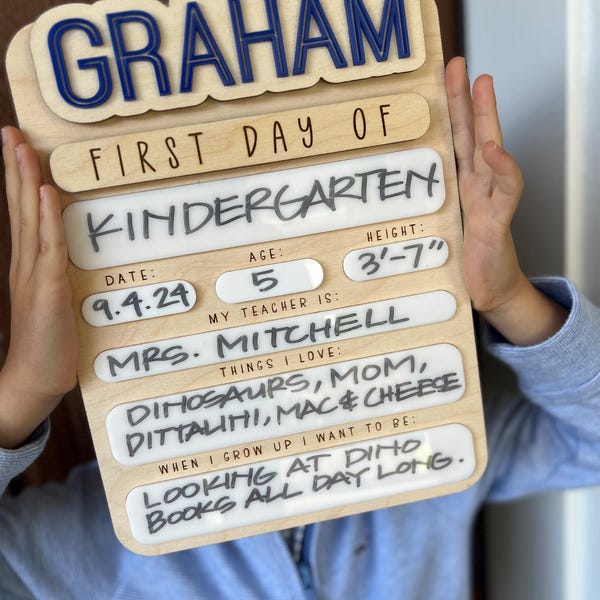 GRAHAM
FIRST DAY OF
KINDERGARTEN
DATE: AGE: HEIGHT:
9.4.24 5 3'-7"
MY TEACHER IS:
MRS. MITCHELL
THINGS I LOVE:
DINOSAURS, MOM,
DITTALINI, MAC & CHEESE
WHEN I GROW UP I WANT TO BE:
LOOKING AT DINO
BOOKS ALL DAY LONG.